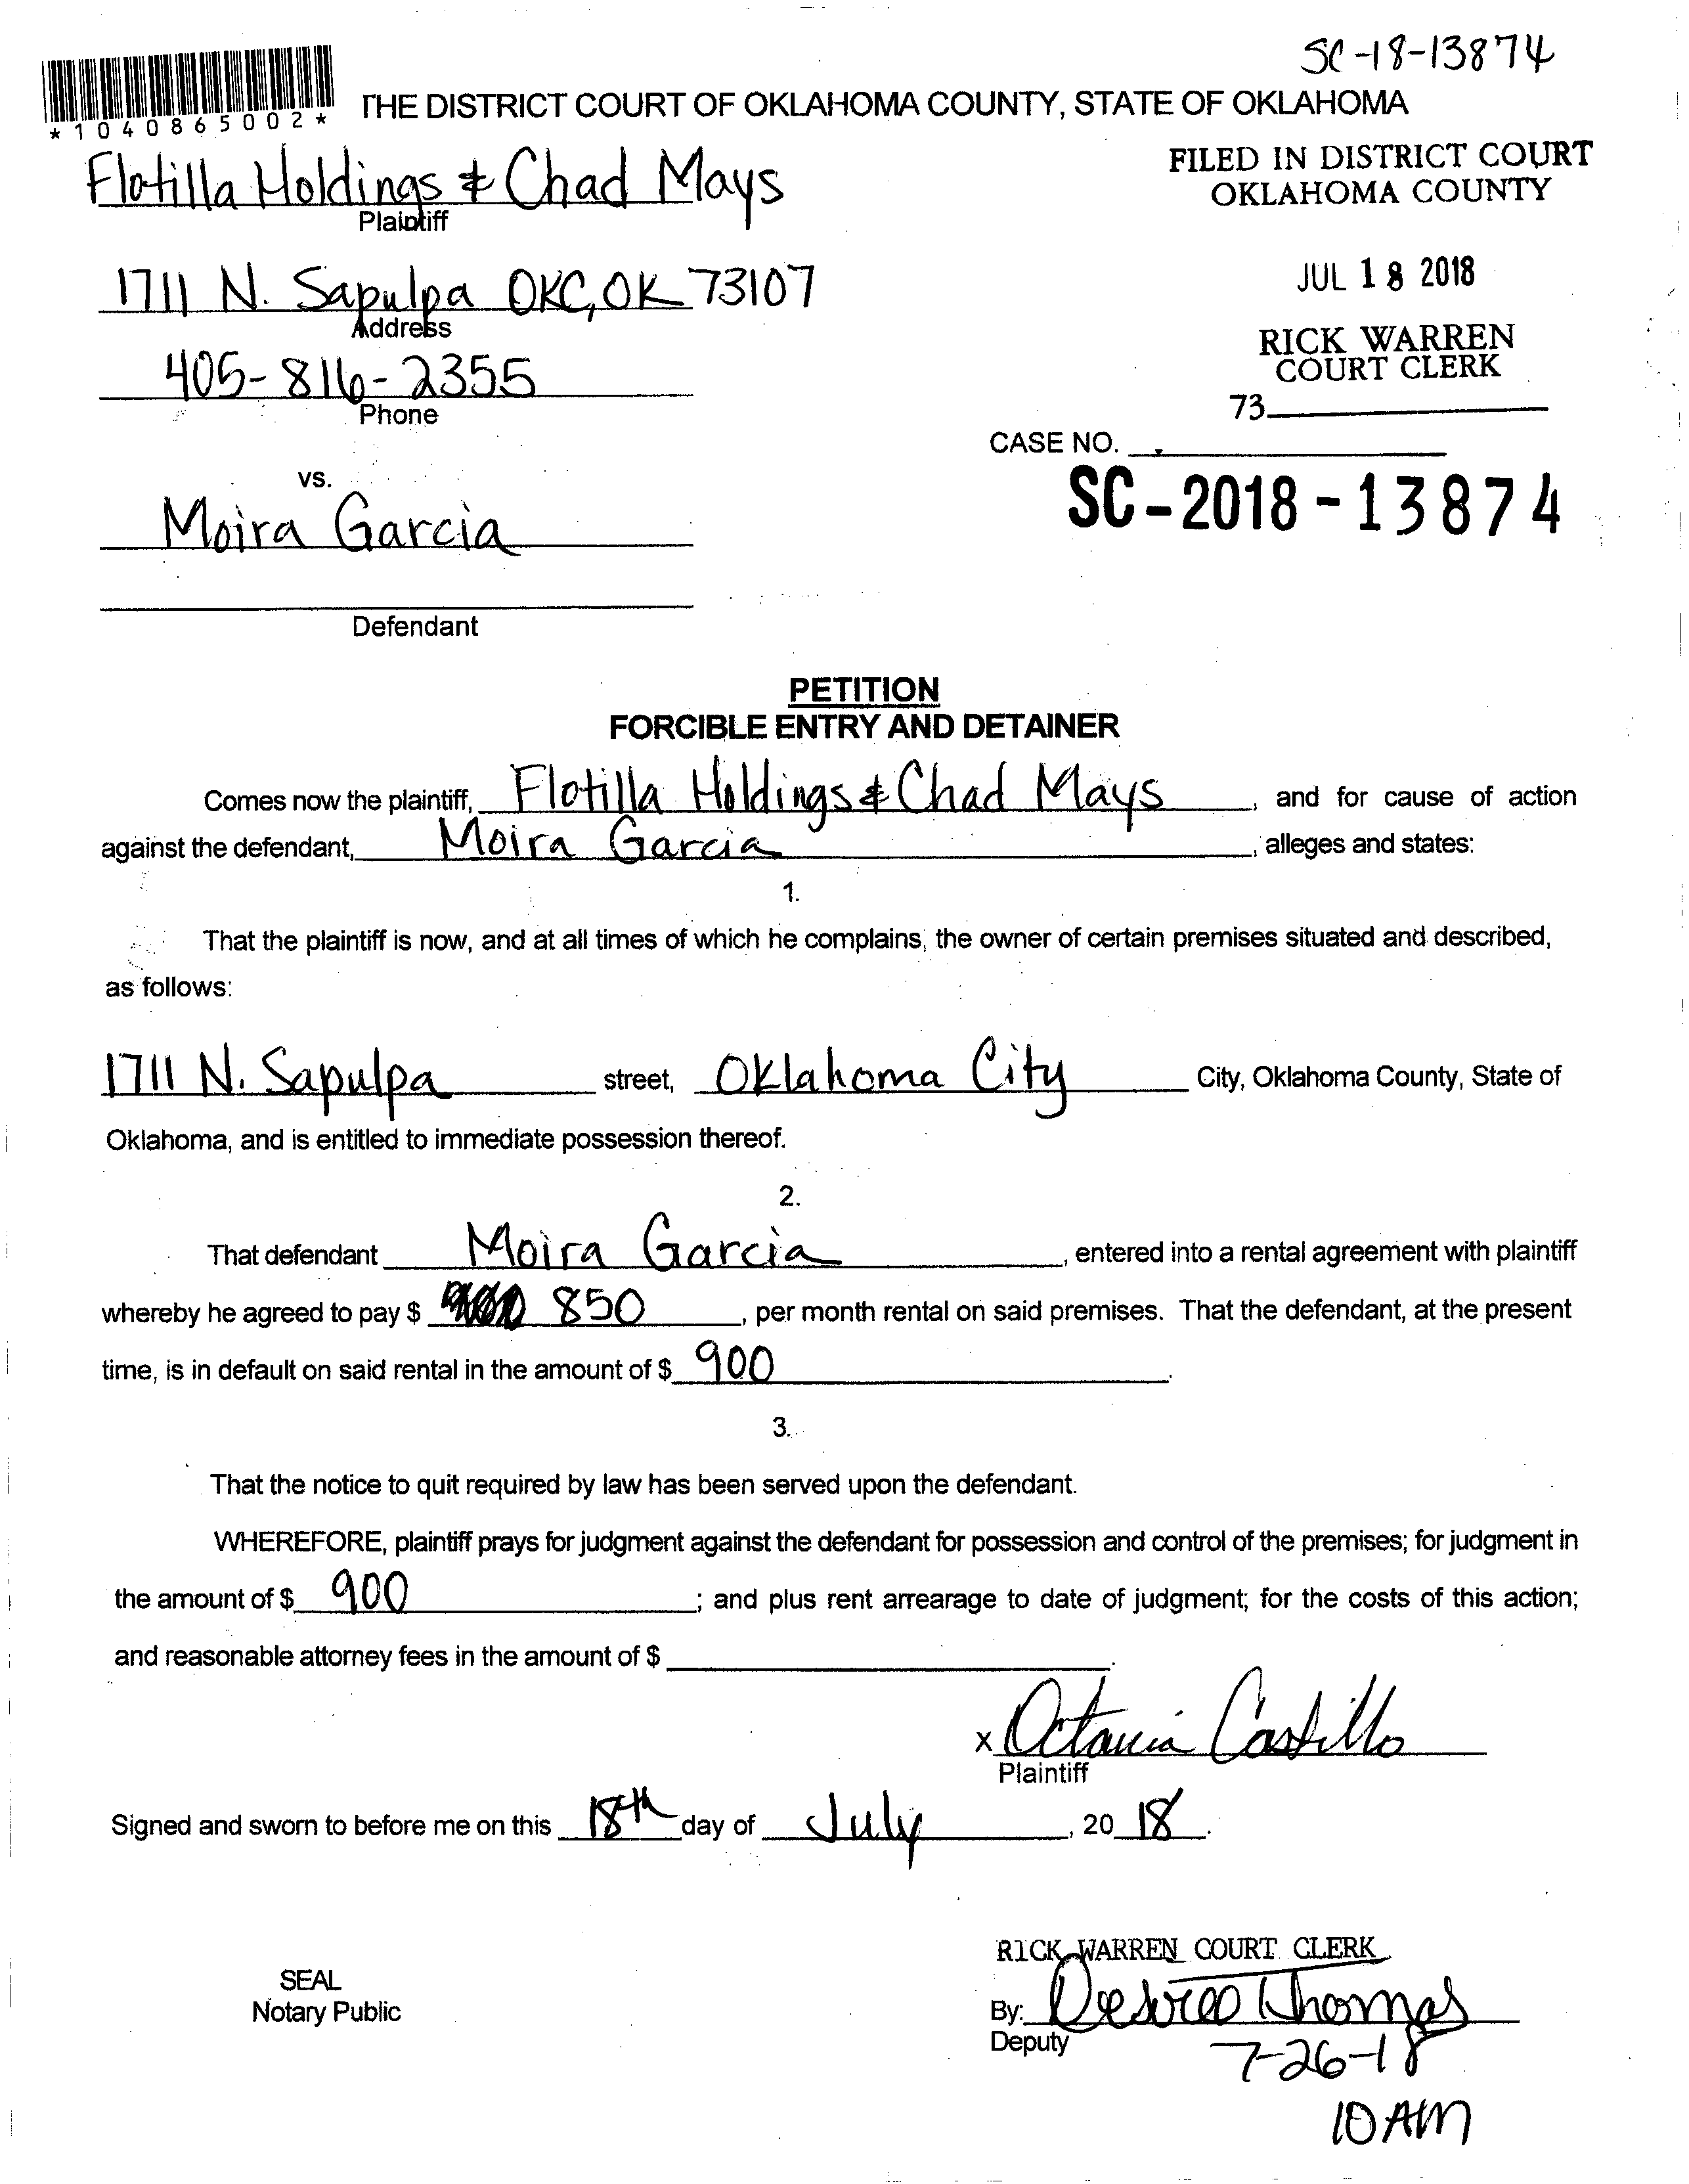 SC-18-13874
*1040865002*
THE DISTRICT COURT OF OKLAHOMA COUNTY, STATE OF OKLAHOMA
Flotilla Holdings & Chad Mays
Plaintiff
FILED IN DISTRICT COURT
OKLAHOMA COUNTY
1711 N. Sapulpa OKC, OK 73107
Address
JUL 18 2018
405-816-2355
Phone
RICK WARREN
COURT CLERK
73
CASE NO.
SC-2018-13874
vs.
Moira Garcia
Defendant
PETITION
FORCIBLE ENTRY AND DETAINER
Comes now the plaintiff, Flotilla Holdings & Chad Mays, and for cause of action
against the defendant, Moira Garcia, alleges and states:
1.
That the plaintiff is now, and at all times of which he complains, the owner of certain premises situated and described,
as follows:
1711 N. Sapulpa street, Oklahoma City City, Oklahoma County, State of
Oklahoma, and is entitled to immediate possession thereof.
2.
That defendant Moira Garcia, entered into a rental agreement with plaintiff
whereby he agreed to pay $ 850, per month rental on said premises. That the defendant, at the present
time, is in default on said rental in the amount of $ 900.
3.
That the notice to quit required by law has been served upon the defendant.
WHEREFORE, plaintiff prays for judgment against the defendant for possession and control of the premises; for judgment in
the amount of $ 900; and plus rent arrearage to date of judgment; for the costs of this action;
and reasonable attorney fees in the amount of $ .
x Octavia Castillo
Plaintiff
Signed and sworn to before me on this 18th day of July, 20 18.
RICK WARREN COURT CLERK
SEAL
Notary Public
By: Desiree Thomas
Deputy
7-26-18
10 AM